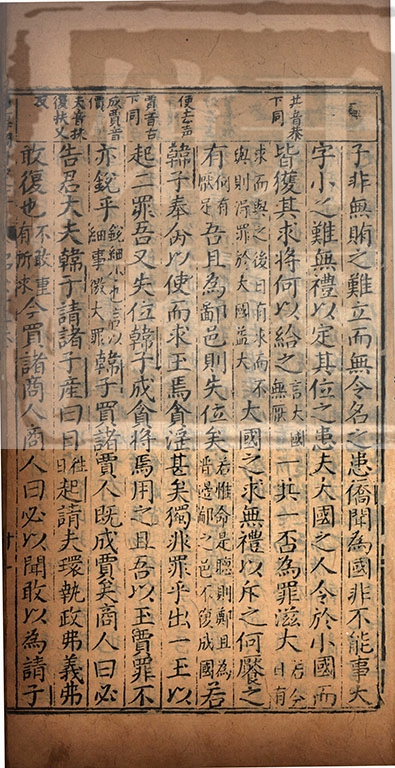 子非無賄之難立而無令名之患僑聞為國非不能事大
字小之難無禮以定其位之患夫大國之人令於小國而
共音恭下同
皆獲其求將何以給之言大國無厭一共一否為罪滋大若今日有
求而與之後日有求而不與則得罪於大國益大大國之求無禮以斥之何饜之
有何有厭足吾且為鄙邑則失位矣若惟命是聽則鄭且為晉邊鄙之邑不復成國若
使去声
韓子奉命以使而求玉焉貪淫甚矣獨非罪乎出一玉以
賈音古下同
起二罪吾又失位韓子成貪將焉用之且吾以玉賈罪不
成賈音價
亦銳乎銳細小也言以細事徼大罪韓子買諸賈人既成賈矣商人曰必
夫音扶
復扶又反
告君大夫韓子請諸子產曰日往日起請夫環執政弗義弗
敢復也不敢重有所求今買諸商人商人曰必以聞敢以為請子